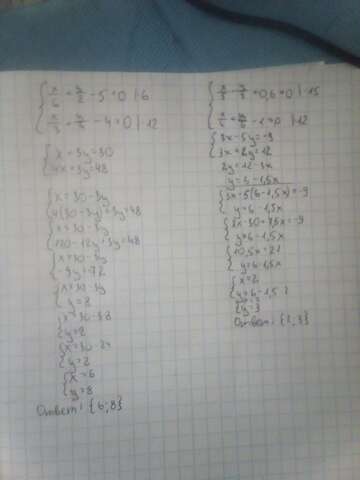 x/6 + y/2 - 5 = 0 | · 6
x/3 + y/4 - 4 = 0 | · 12
x + 3y = 30
4x + 3y = 48
x = 30 - 3y
4(30 - 3y) + 3y = 48
x = 30 - 3y
120 - 12y + 3y = 48
x = 30 - 3y
-9y = -72
x = 30 - 3y
y = 8
x = 30 - 3·8
y = 8
x = 30 - 24
y = 8
x = 6
y = 8
Ответ: {6; 8}
x/5 - y/3 + 0,6 = 0 | · 15
x/4 + y/6 - 1 = 0 | · 12
3x - 5y = -9
3x + 2y = 12
2y = 12 - 3x
y = 6 - 1,5x
3x - 5(6 - 1,5x) = -9
y = 6 - 1,5x
3x - 30 + 7,5x = -9
y = 6 - 1,5x
10,5x = 21
y = 6 - 1,5x
x = 2
y = 6 - 1,5 · 2
y = 3
Ответ: {2; 3}